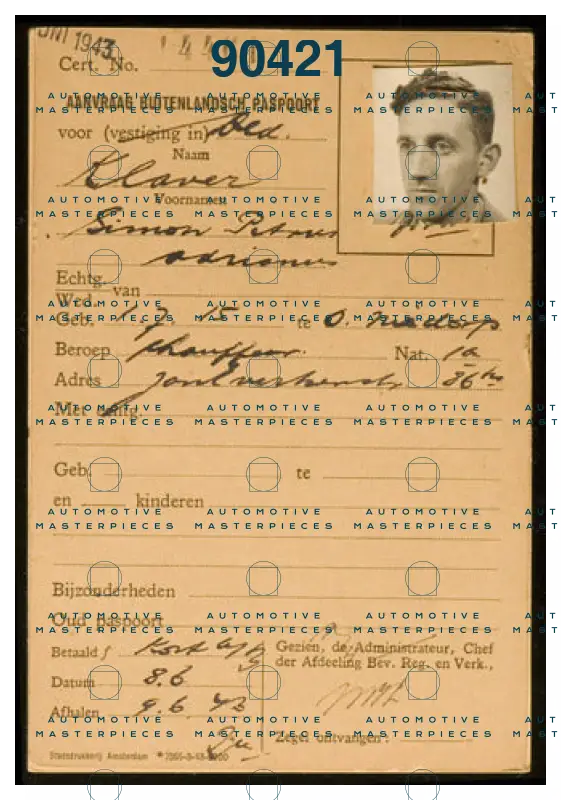 JUNI 1943
90421
Cert. No.
AANVRAAG BUITENLANDSCH PASPOORT
voor (vestiging in)
Naam
Klaver
Voornamen
Simon Petrus
Adrianus
Echtg.
Wed. van
Geb. 15 te O. Niedorp
Beroep chauffeur. Nat.
Adres 86 hs
Met echtg.
Geb. te
en kinderen
Bijzonderheden
Oud paspoort
Betaald f
Gezien, de Administrateur, Chef
der Afdeeling Bev. Reg. en Verk.,
Datum 8.6
Afhalen 9.6 43
Zegel ontvangen:
Stadsdrukkerij Amsterdam
AUTOMOTIVE
MASTERPIECES